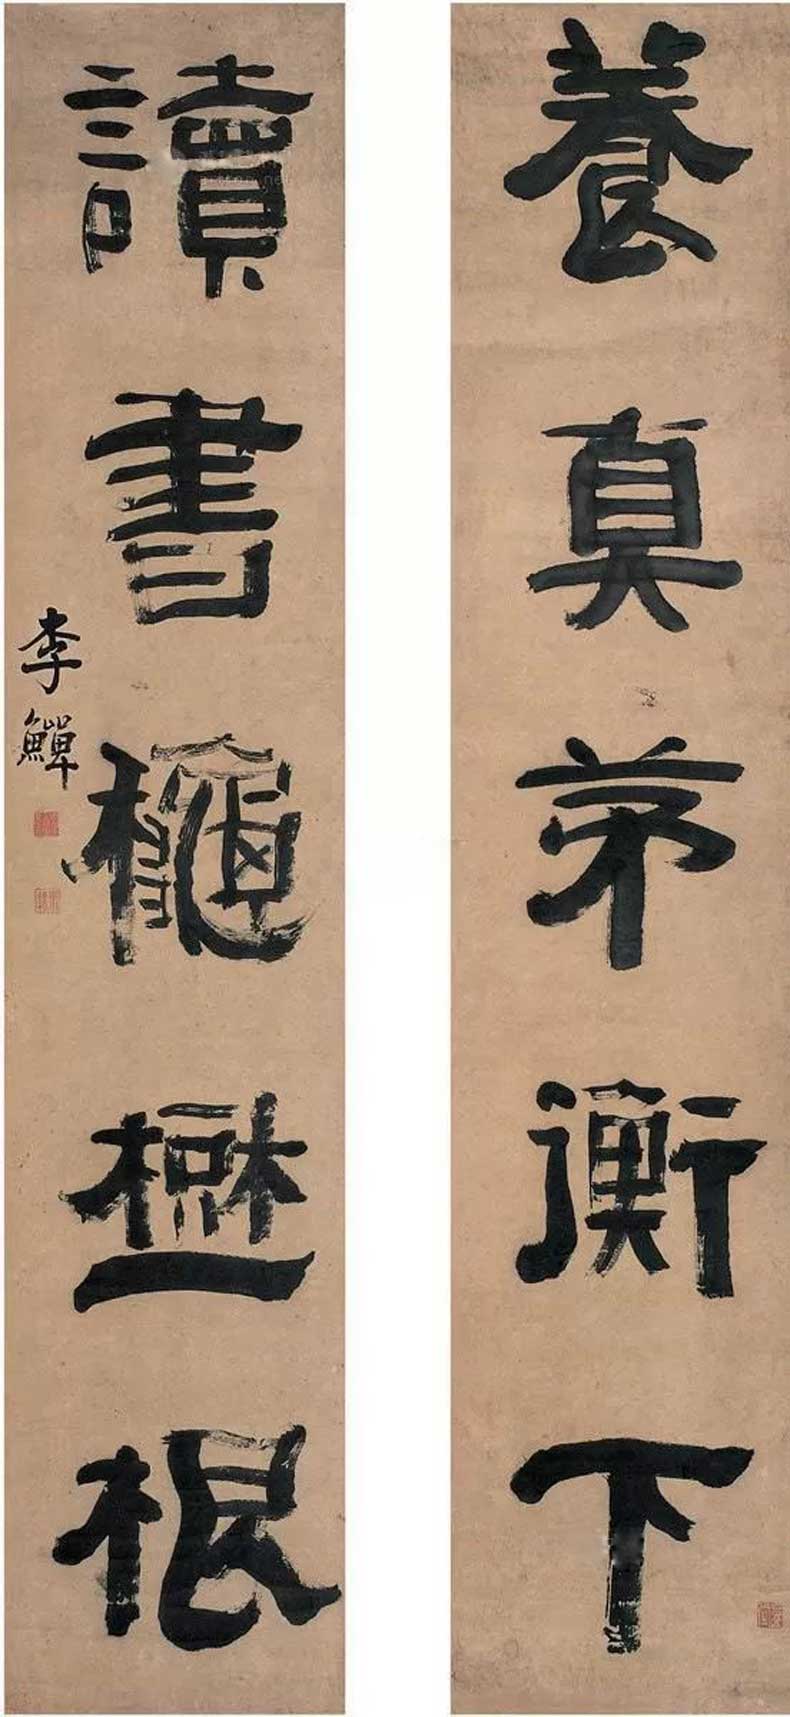 養真茅衡下
讀書龝根
李鱓